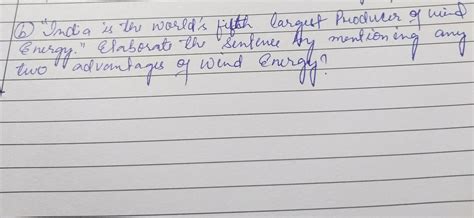 (b) "India is the world's fifth largest Producer of wind
Energy." Elaborate the Sentence by mentioning any
two advantages of Wind Energy?